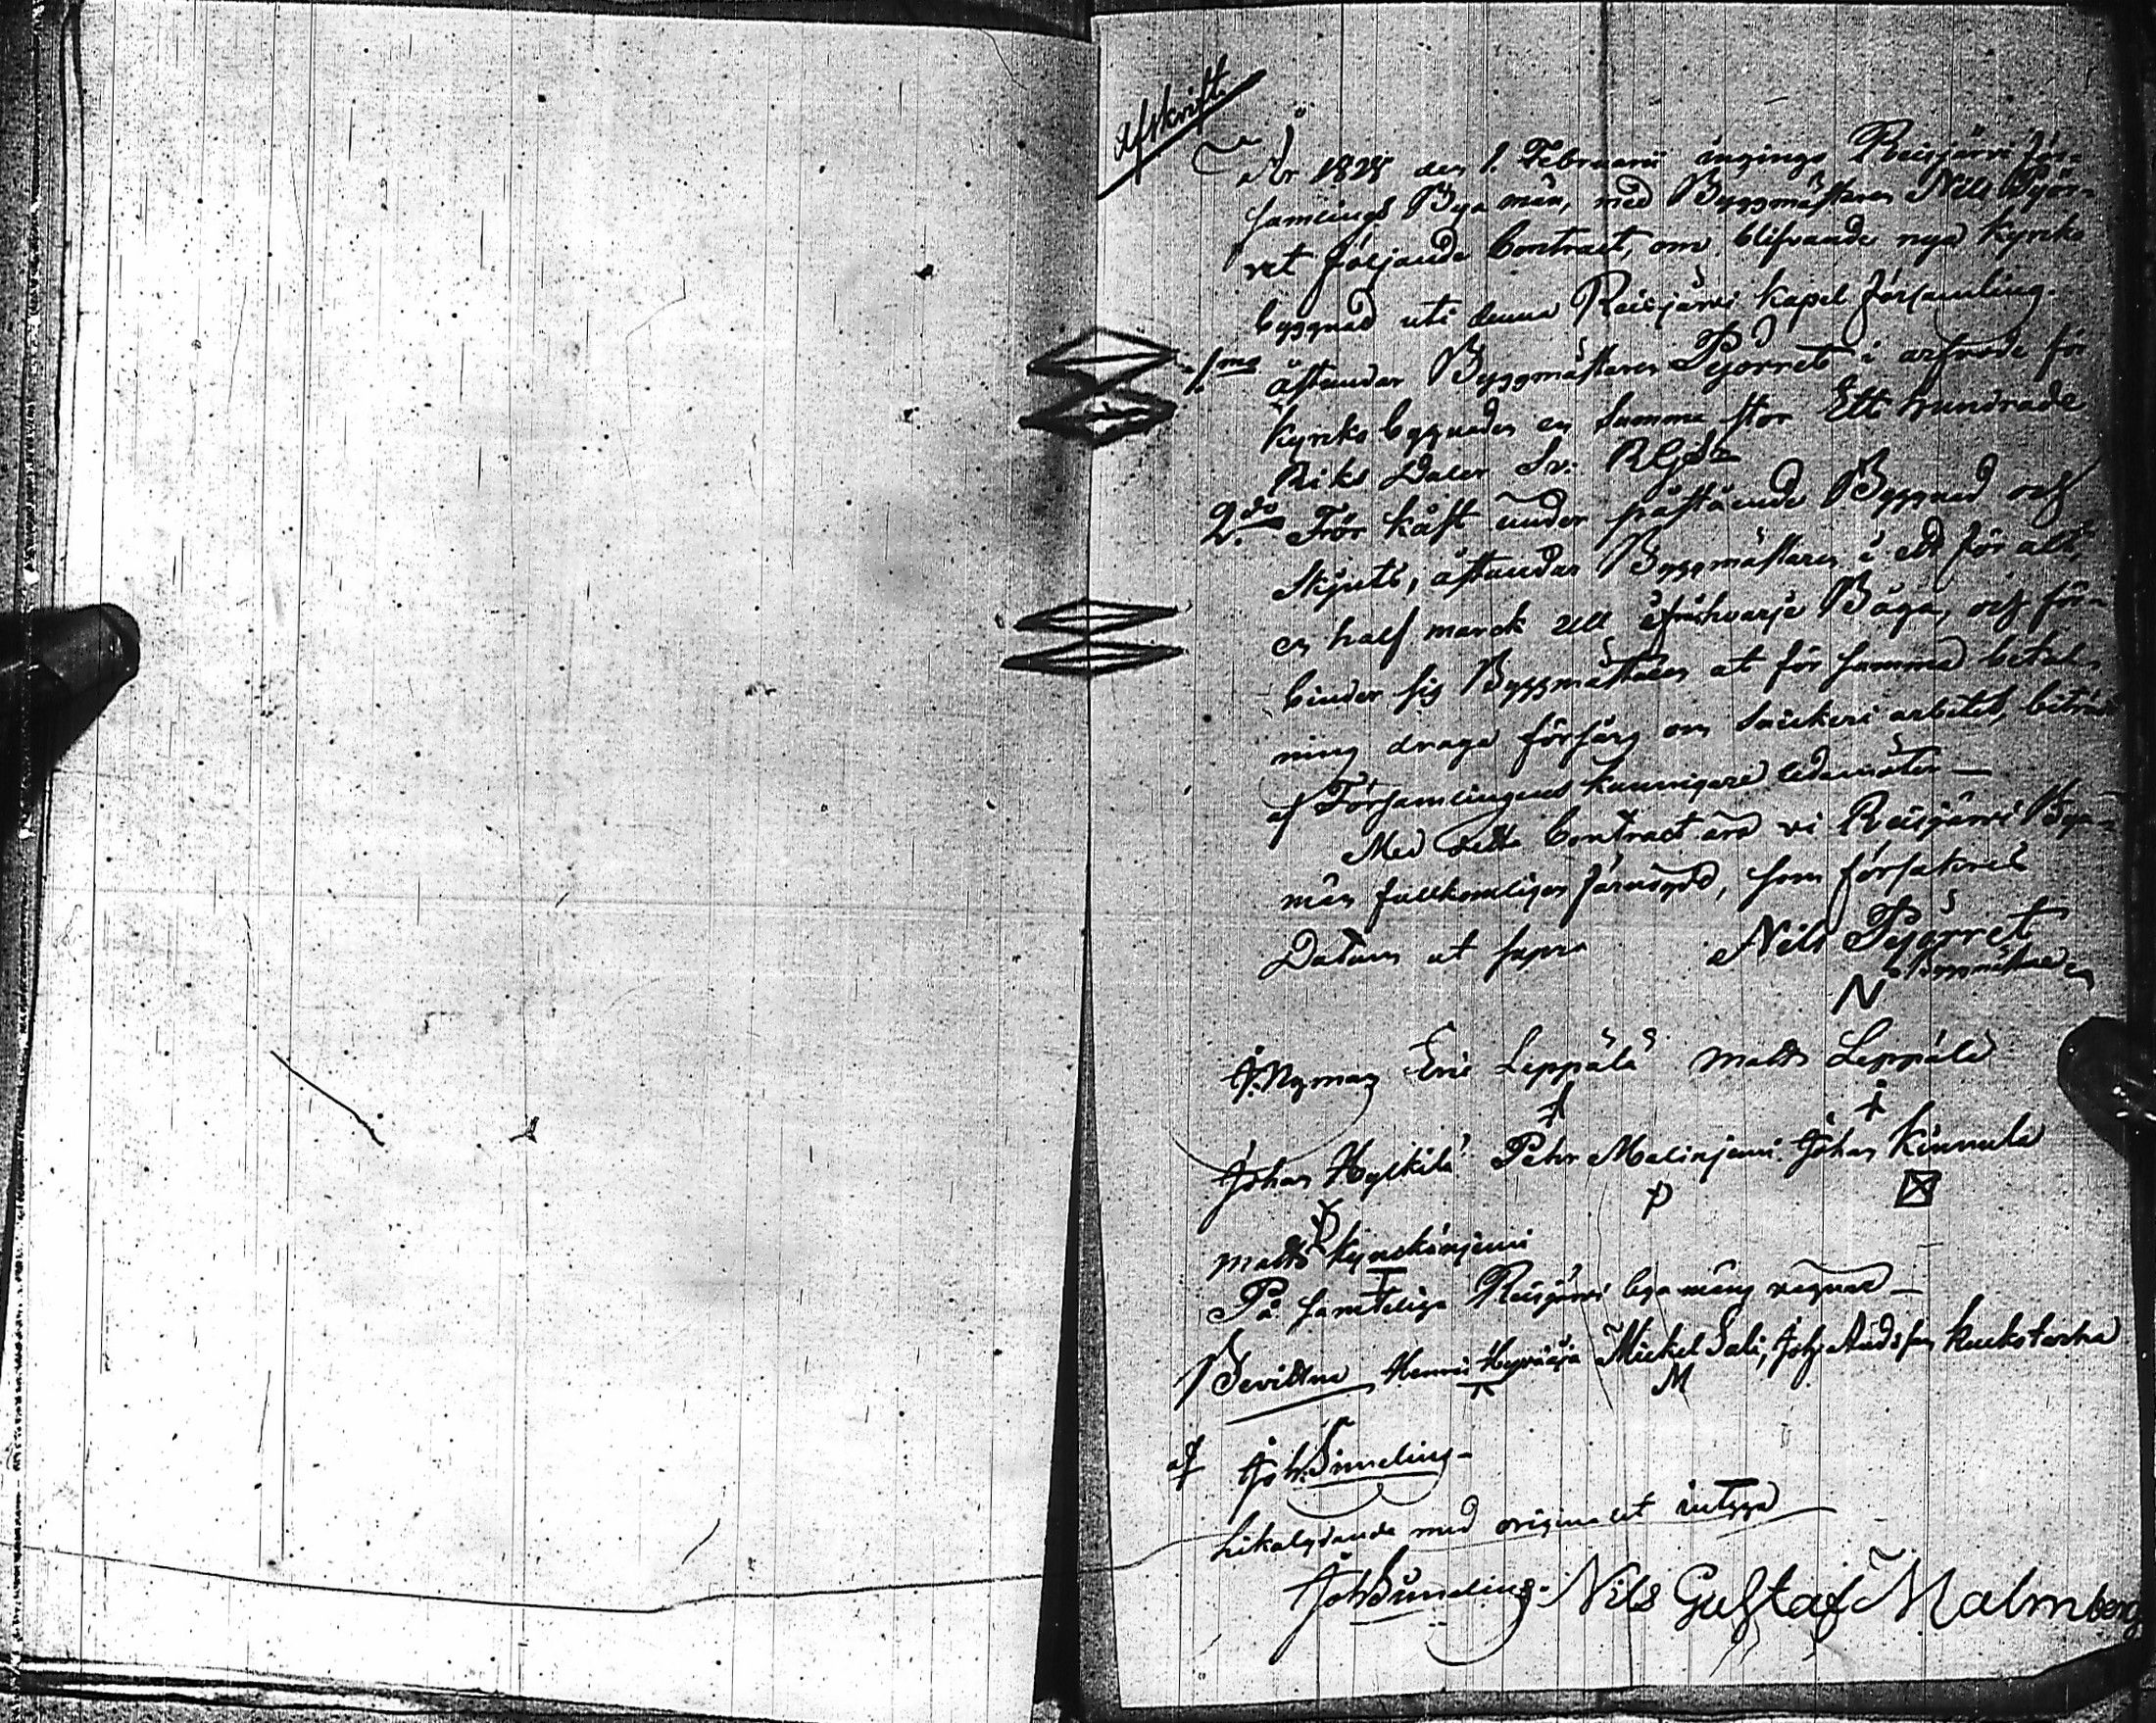 Afskrift
År 1828 den 1. Februarii ingingo Reisjärvi För-
samlings Bya män, med Byggmästaren Nils Pyör-
ret följande Contract, om blifvande nya Kyrcko
byggnad uti denna Reisjärvi Kapel församling.
1.mo åstundar Byggmästaren Pyörret i arfvode för
Kyrcko byggnaden en Summa stor Ett hundrade
Riks Daler Sv: RGds
2.do För kåst under påstående Byggnad och
skjuts, åstundar Byggmästaren i ett för alt,
en half marck af hvarje Böga, och för-
binder sig Byggmästaren at för samma betal-
ning draga försorg om Snickeri arbetet, biträd
af Församlingens kunnigare ledamöter —
Med detta Contract äro vi Reisjärvi Bya-
män fullkomligen förnögde, som försäkras
Datum ut supra Nils Pyörret
Byggmästaren
N
J. Nyman Eric Leppälä Matts Leppälä
Johan Hylkilä Pehr Malinjemi Johan Kinnula
P
Matts Kyrckönjemi
På samteliga Reisjärvi bya mäns vägnar —
Bevittna Henric Hyväjä Mickel Sali, Joh: Andsson Kuckotarha
M
af Joh. Simelius
Likalydande med originalet intyga
Joh Simelius. Nils Gustaf Malmberg